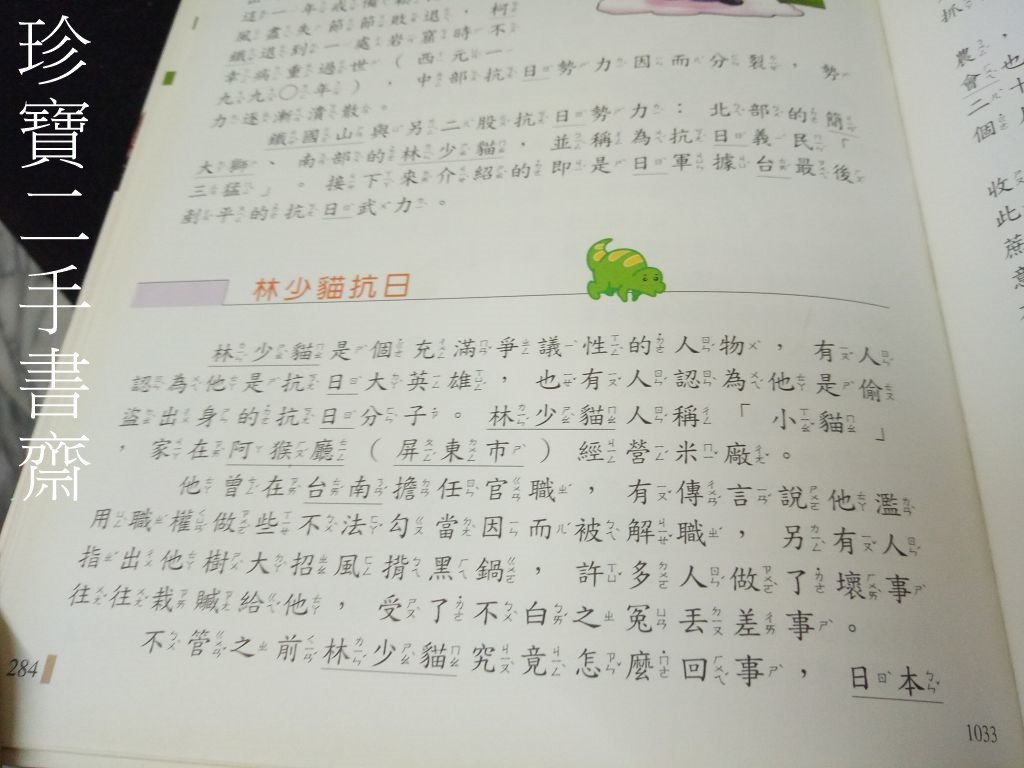 珍寶二手書齋
這一年戒備
風盡失節節敗退，柯
鐵退到一處岩窟時不
幸病重過世（西元一
九九〇年），中部抗日勢力因而分裂，勢
力逐漸潰散。
鐵國山與另二股抗日勢力：北部的簡
大獅、南部的林少貓，並稱為抗日義民「
三猛」。接下來介紹的即是日軍據台最後
剷平的抗日武力。
林少貓抗日
林少貓是個充滿爭議性的人物，有人
認為他是抗日大英雄，也有人認為他是偷
盜出身的抗日分子。林少貓人稱「小貓」
，家在阿猴廳（屏東市）經營米廠。
他曾在台南擔任官職，有傳言說他濫
用職權做些不法勾當因而被解職，另有人
指出他樹大招風揹黑鍋，許多人做了壞事
往往栽贓給他，受了不白之冤丟差事。
不管之前林少貓究竟怎麼回事，日本
284
1033
抓
農，也
會十
二個
收
此
蔗
意